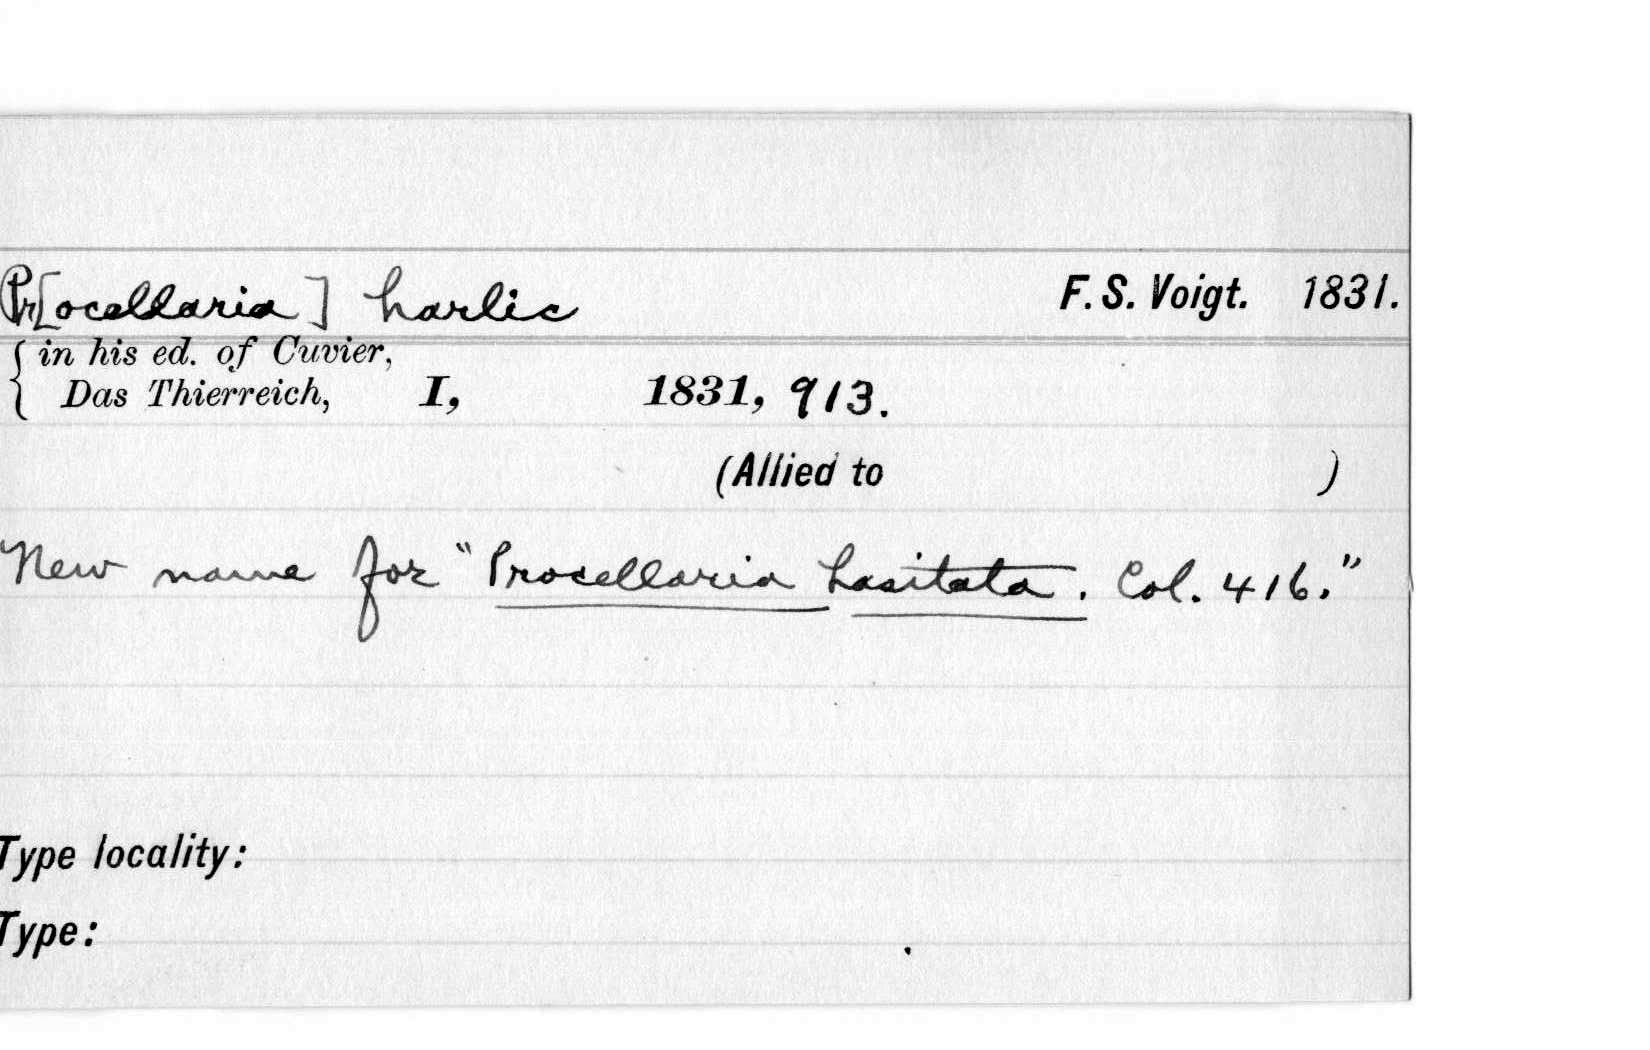 Pr[ocellaria] harlic F. S. Voigt. 1831.
{in his ed. of Cuvier,
Das Thierreich, I, 1831, 913.
(Allied to )
New name for "Procellaria hasitata. Col. 416."
Type locality:
Type: